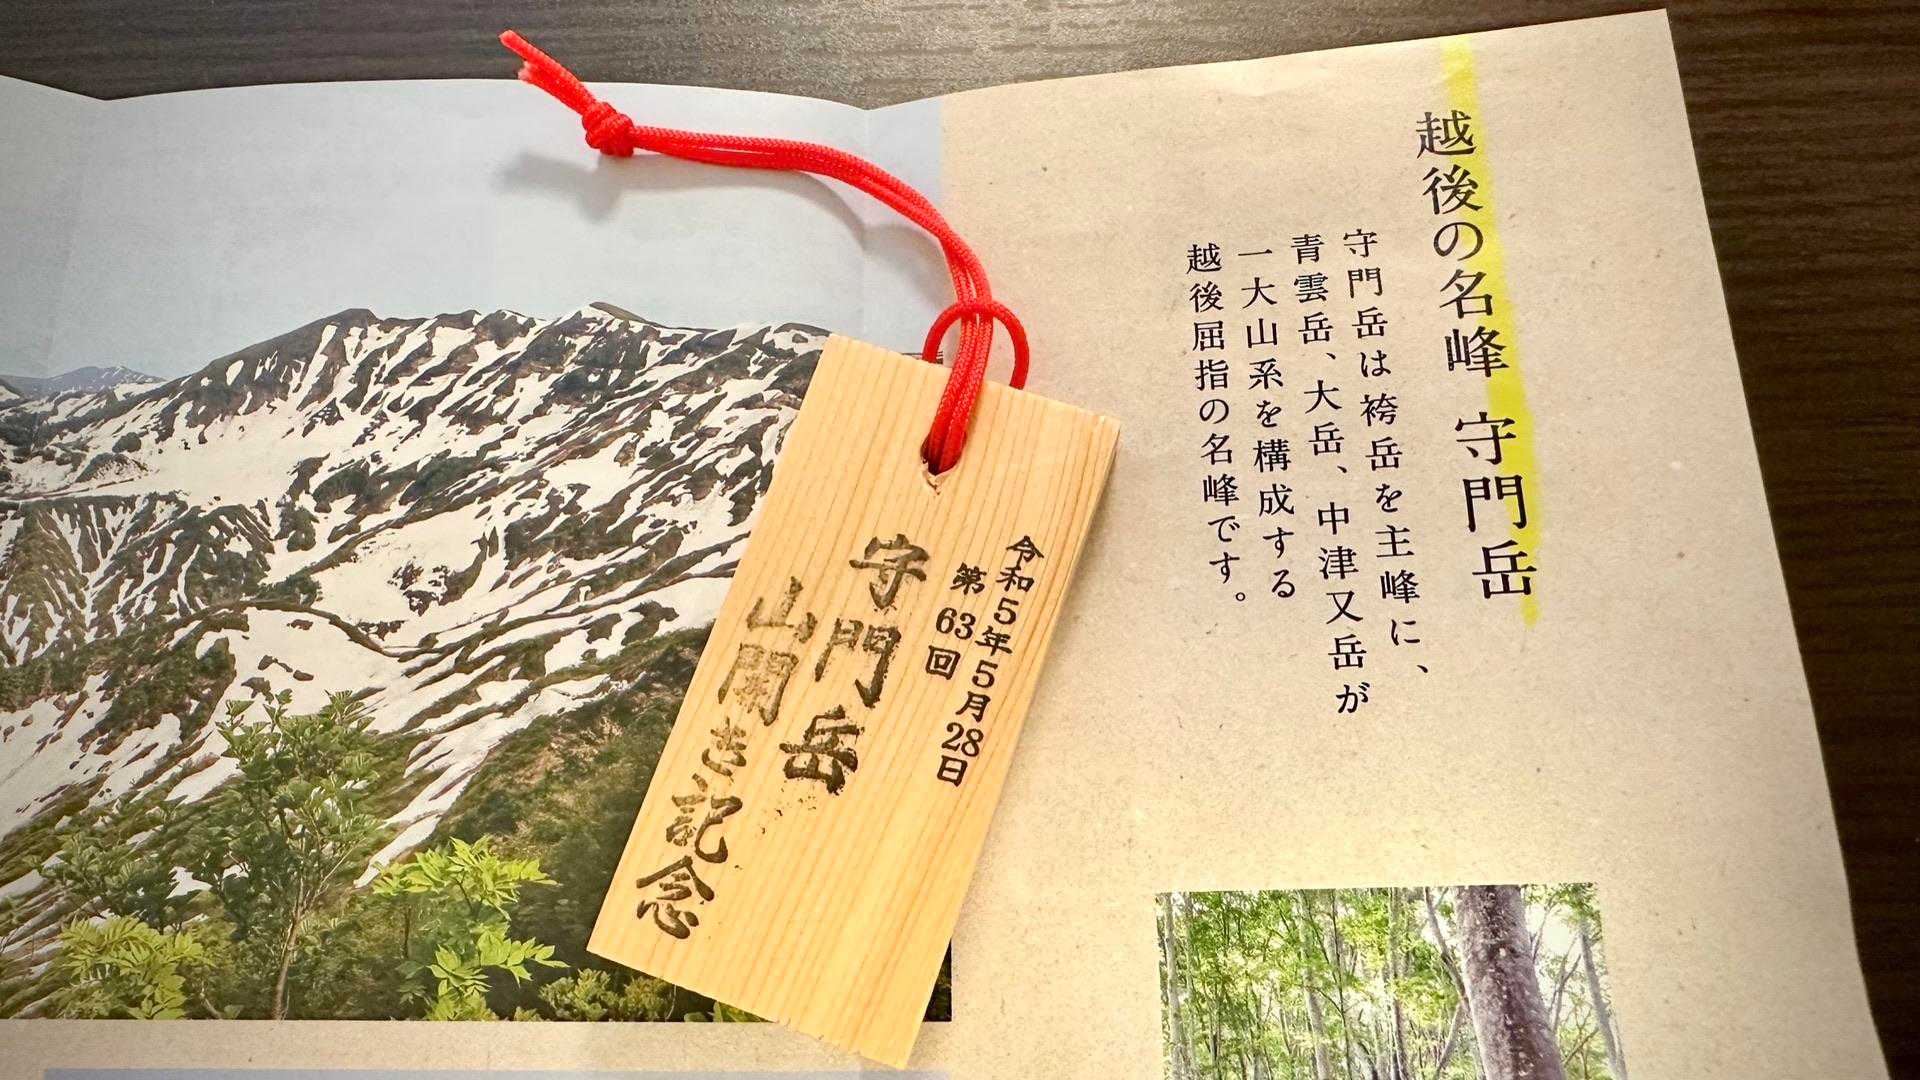 越後の名峰 守門岳
守門岳は袴岳を主峰に、
青雲岳、大岳、中津又岳が
一大山系を構成する
越後屈指の名峰です。
令和5年5月28日
第63回
守門岳
山開き記念